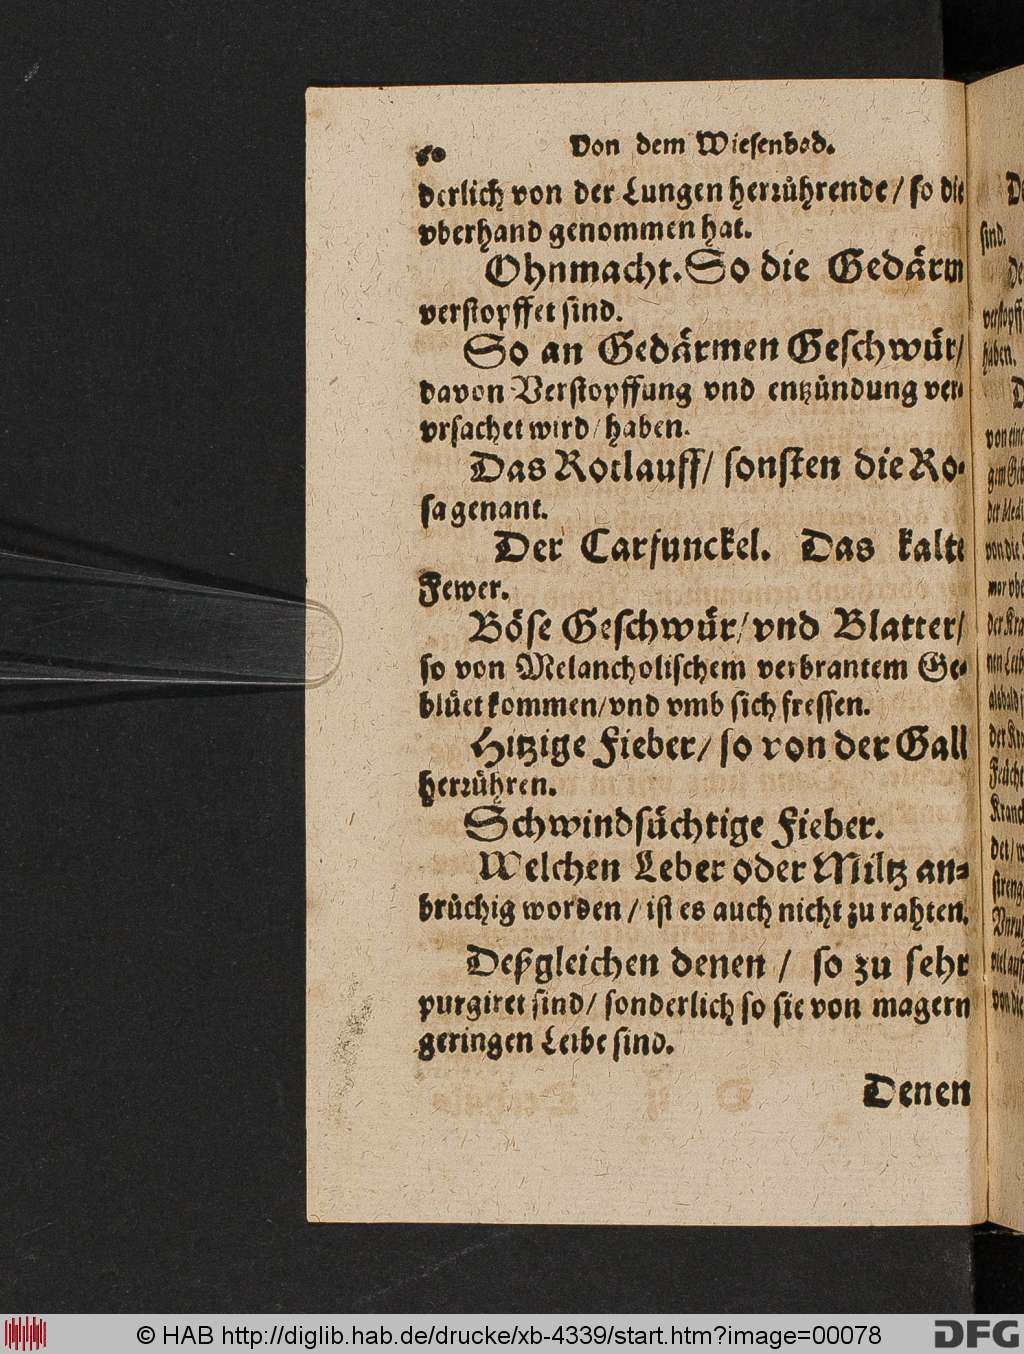 60 Von dem Wiesenbad.
derlich von der Lungen herrührende / so die
vberhand genommen hat.
Ohnmacht. So die Gedärm
verstopffet sind.
So an Gedärmen Geschwür /
davon Verstopffung vnd entzündung ver-
vrsachet wird / haben.
Das Rotlauff / sonsten die Ro-
sa genant.
Der Carfunckel. Das kalte
Fewer.
Böse Geschwür / vnd Blatter /
so von Melancholischem verbrantem Ge-
blüet kommen / vnd vmb sich fressen.
Hitzige Fieber / so von der Gall
herrühren.
Schwindsüchtige Fieber.
Welchen Leber oder Miltz an-
brüchig worden / ist es auch nicht zu rahten.
Deßgleichen denen / so zu sehr
purgiret sind / sonderlich so sie von magern
geringen Leibe sind.
Denen
sind.
haben.
© HAB http://diglib.hab.de/drucke/xb-4339/start.htm?image=00078
DFG